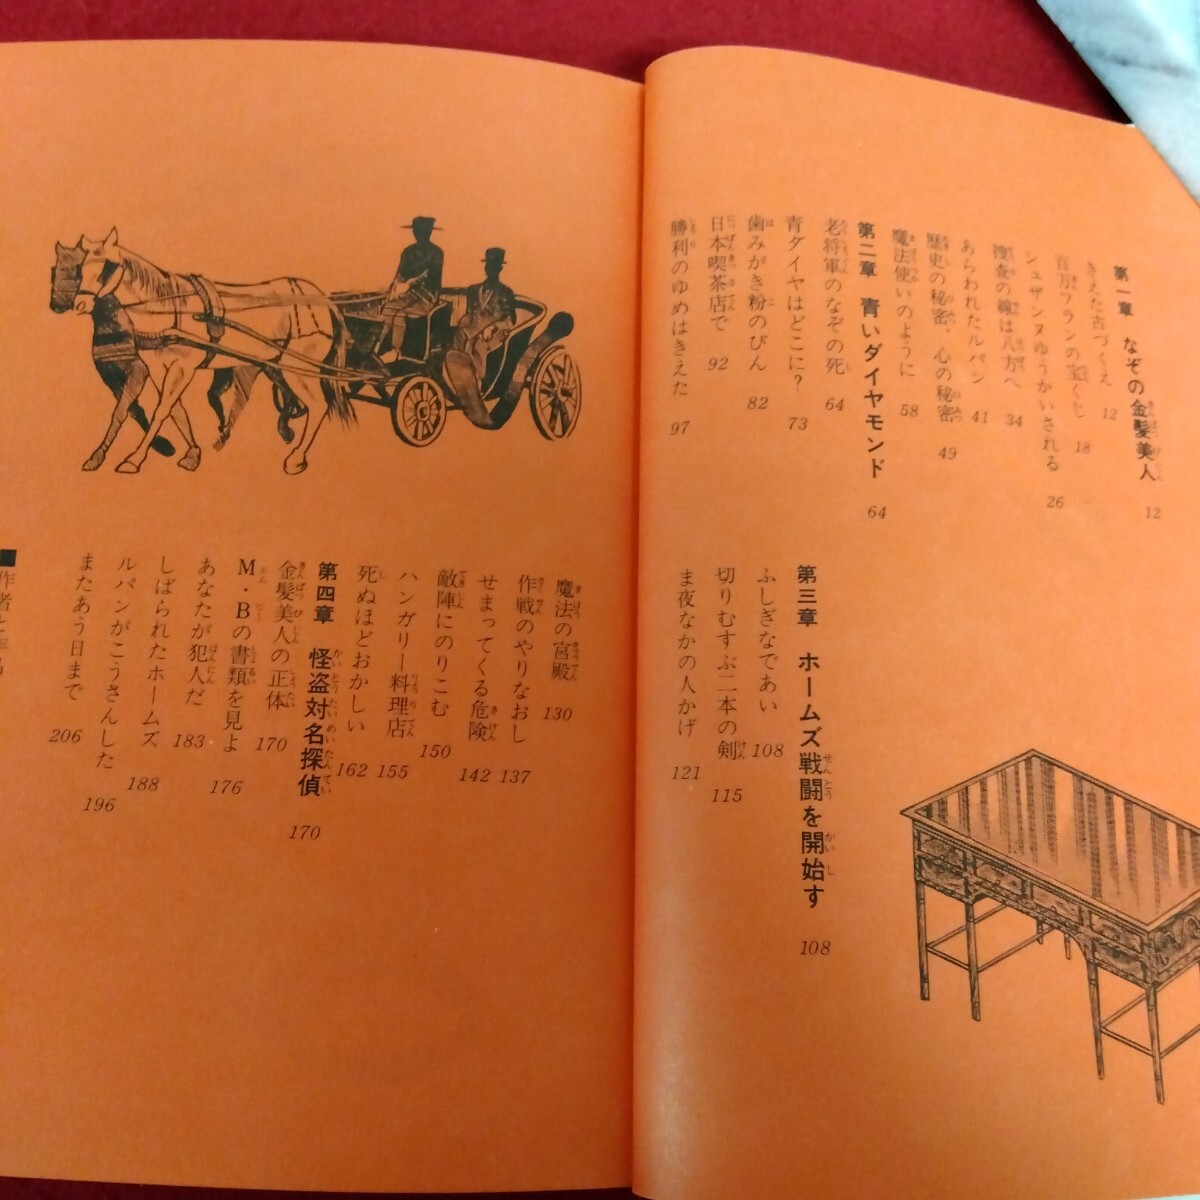 第一章 なぞの金髪美人 12
きえた古づくえ 12
百万フランの宝くじ 18
シュザンヌゆうかいされる 26
捜査の線は八方へ 34
あらわれたルパン 41
歴史の秘密、心の秘密 49
魔法使いのように 58
第二章 青いダイヤモンド 64
老将軍のなぞの死 64
青ダイヤはどこに? 73
歯みがき粉のびん 82
日本喫茶店で 92
勝利のゆめはきえた 97
第三章 ホームズ戦闘を開始す 108
ふしぎなであい 108
切りむすぶ二本の剣 115
ま夜なかの人かげ 121
魔法の宮殿 130
作戦のやりなおし 137
せまってくる危険 142
敵陣にのりこむ 150
ハンガリー料理店 155
死ぬほどおかしい 162
第四章 怪盗対名探偵 170
金髪美人の正体 170
M・Bの書類を見よ 176
あなたが犯人だ 183
しばられたホームズ 188
ルパンがこうさんした 196
またあう日まで 206
■作者と